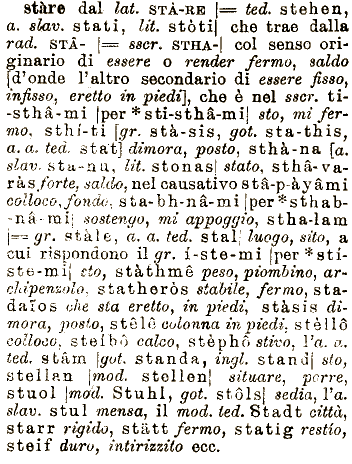 stàre dal lat. STÀ-RE |= ted. stehen,
a. slav. stati, lit. stòti| che trae dalla
rad. STÂ- |= sscr. STHA-| col senso ori-
ginario di essere o render fermo, saldo
[d'onde l'altro secondario di essere fisso,
infisso, eretto in piedi], che è nel sscr. ti-
-sthâ-mi |per *sti-sthâ-mi| sto, mi fer-
mo, sthí-ti [gr. stà-sis, got. sta-this,
a. a. ted. stat] dimora, posto, sthâ-na [a.
slav. sta-nu, lit. stonas| stato, sthâ-va-
ràs forte, saldo, nel causativo stâ-p-àyâmi
colloco, fondo, sta-bh-nâ-mi |per*sthab-
-nâ-mi| sostengo, mi appoggio, stha-lam
|= gr. stàle, a. a. ted. stal| luogo, sito, a
cui rispondono il gr. í-ste-mi |per *sti-
ste-mi| sto, stàthmê peso, piombino, ar-
chipenzolo, statheròs stabile, fermo, sta-
daîos che sta eretto, in piedi, stàsis di-
mora, posto, stêlê colonna in piedi, stèllô
colloco, steibô calco, stèphô stivo, l'a. a.
ted. stâm |got. standa, ingl. stand| sto,
stellan |mod. stellen| situare, porre,
stuol |mod. Stuhl, got. stôls| sedia, l'a.
slav. stul mensa, il mod. ted. Stadt città,
starr rigido, stätt fermo, statig restío,
steif duro, intirizzito ecc.